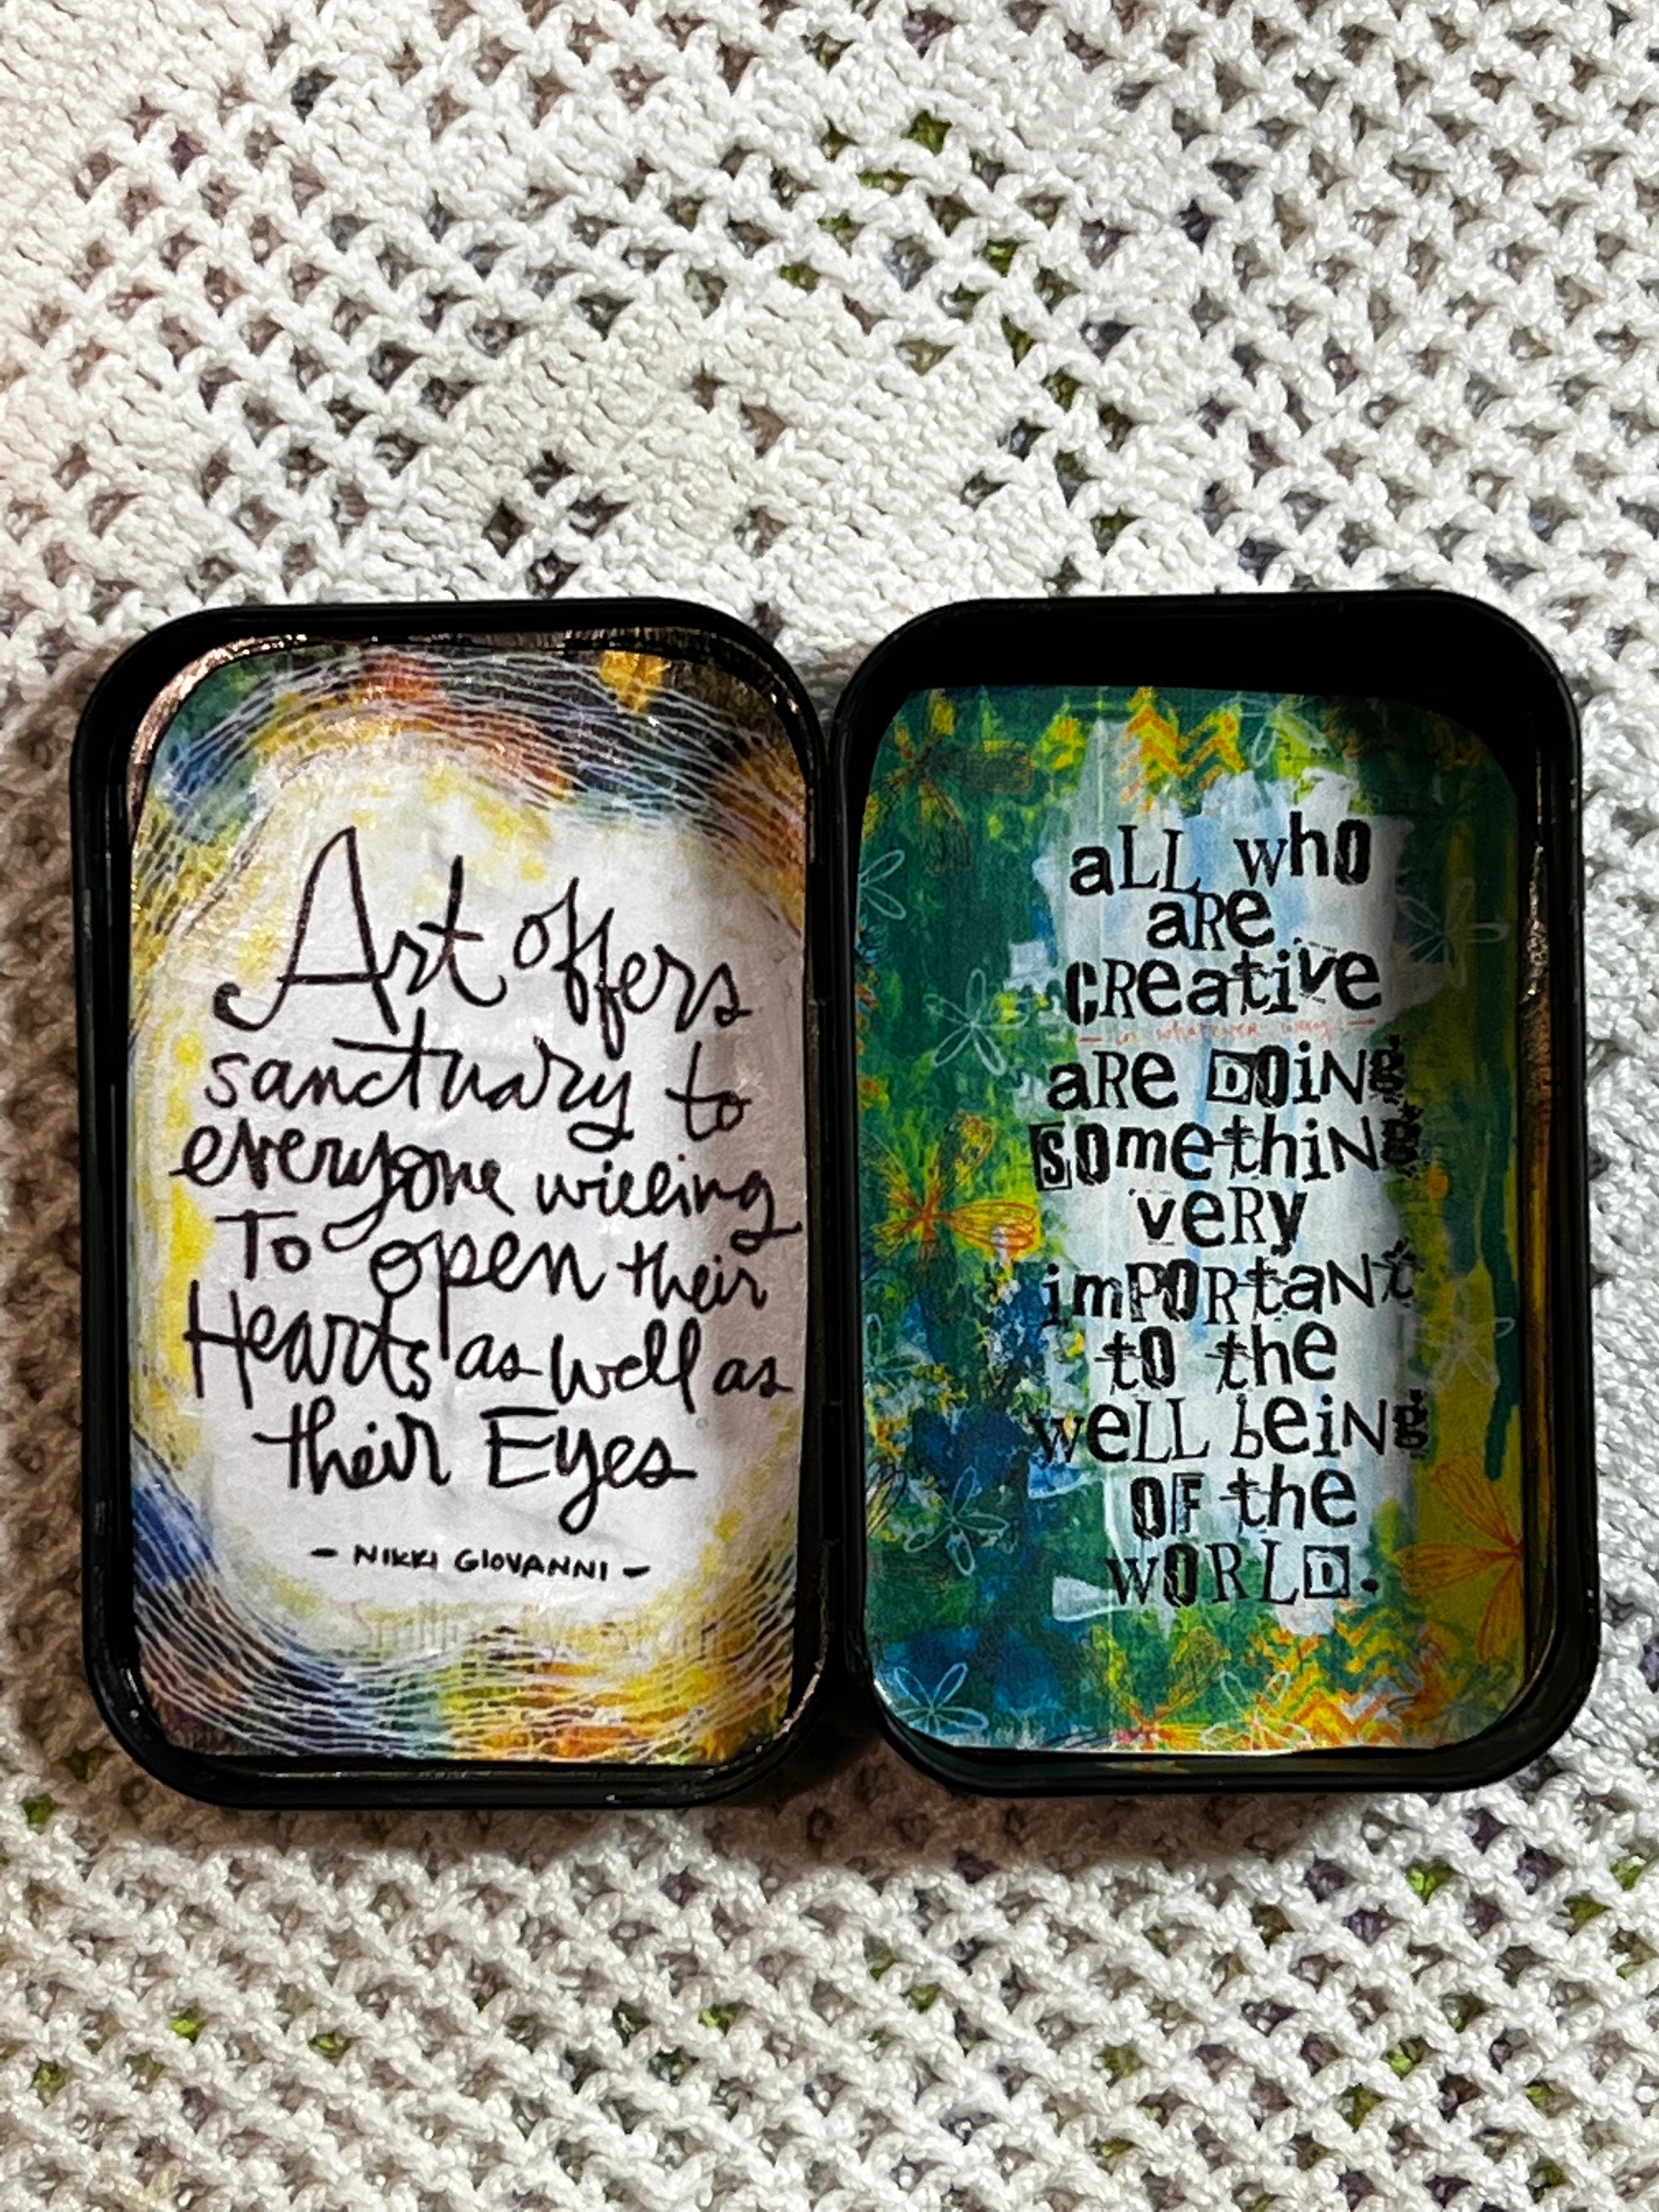 Art offers
sanctuary to
everyone willing
To open their
Hearts as well as
their Eyes
- NIKKI GIOVANNI -
aLL who
aRe
CReative
- in whatever way -
aRe DOiNg
sOmethiNg
veRy
imPORtaNt
tO the
weLL beiNg
OF the
WORLD.